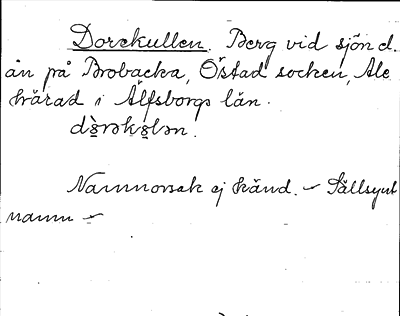 Dorekullen. Berg vid sjön d.
än på Brobacka, Östad socken, Ale
härad i Älfsborgs län.
dò̤rəkɷ̤lən.
Namnorsak ej känd. – Sällsynt
namn –